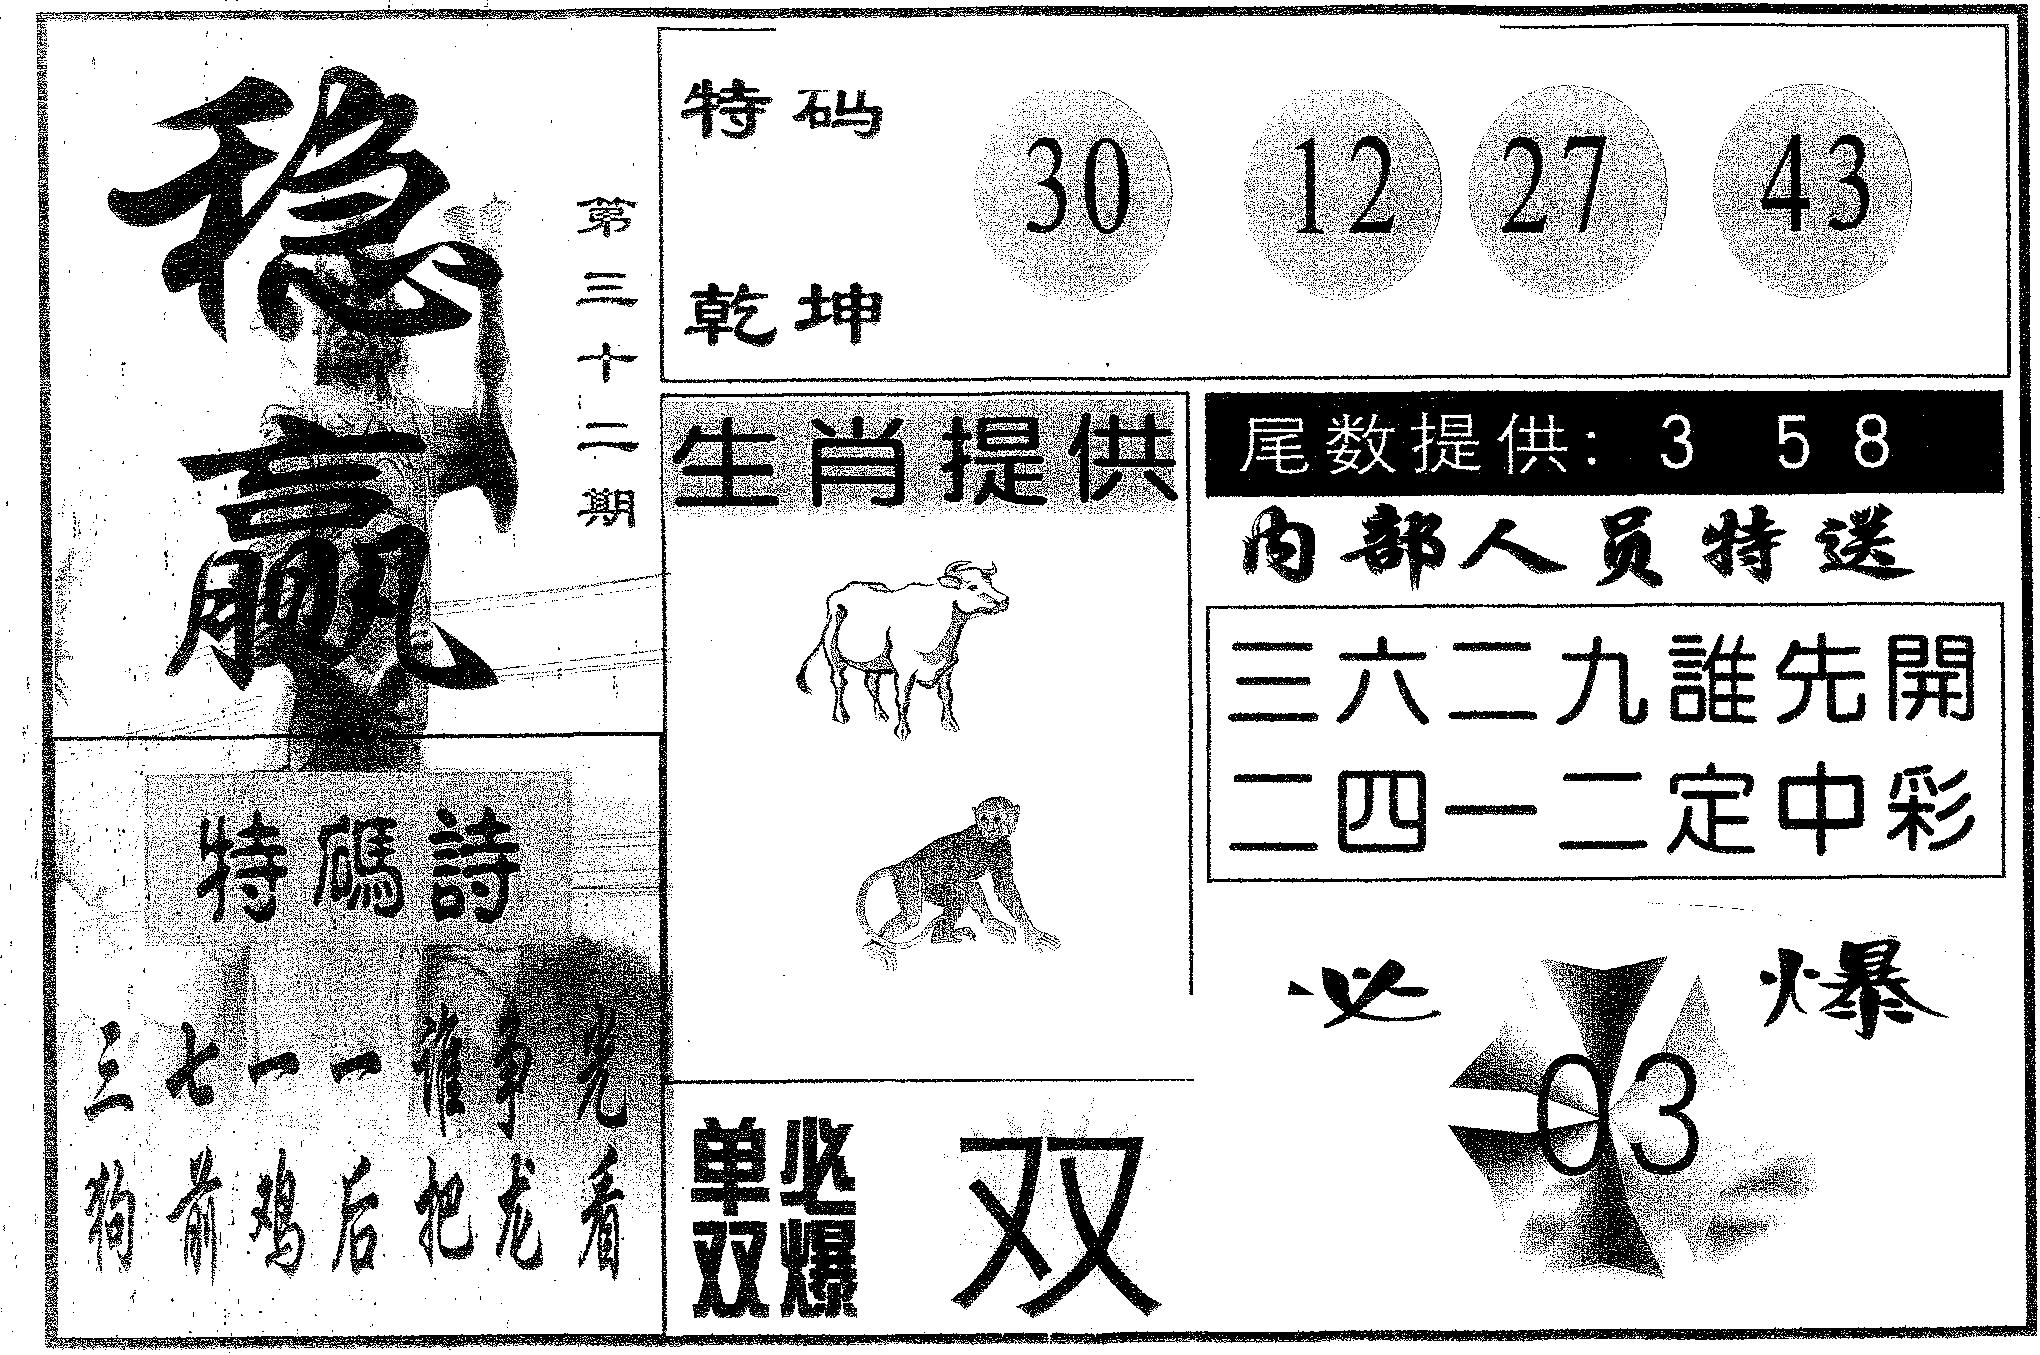 稳赢
第三十二期
特码
乾坤
30 12 27 43
生肖提供
尾数提供: 3 5 8
内部人员特送
三六二九誰先開
二四一二定中彩
特碼詩
三七一一谁争先
狗前鸡后把龙看
单双必爆
双
必爆
03